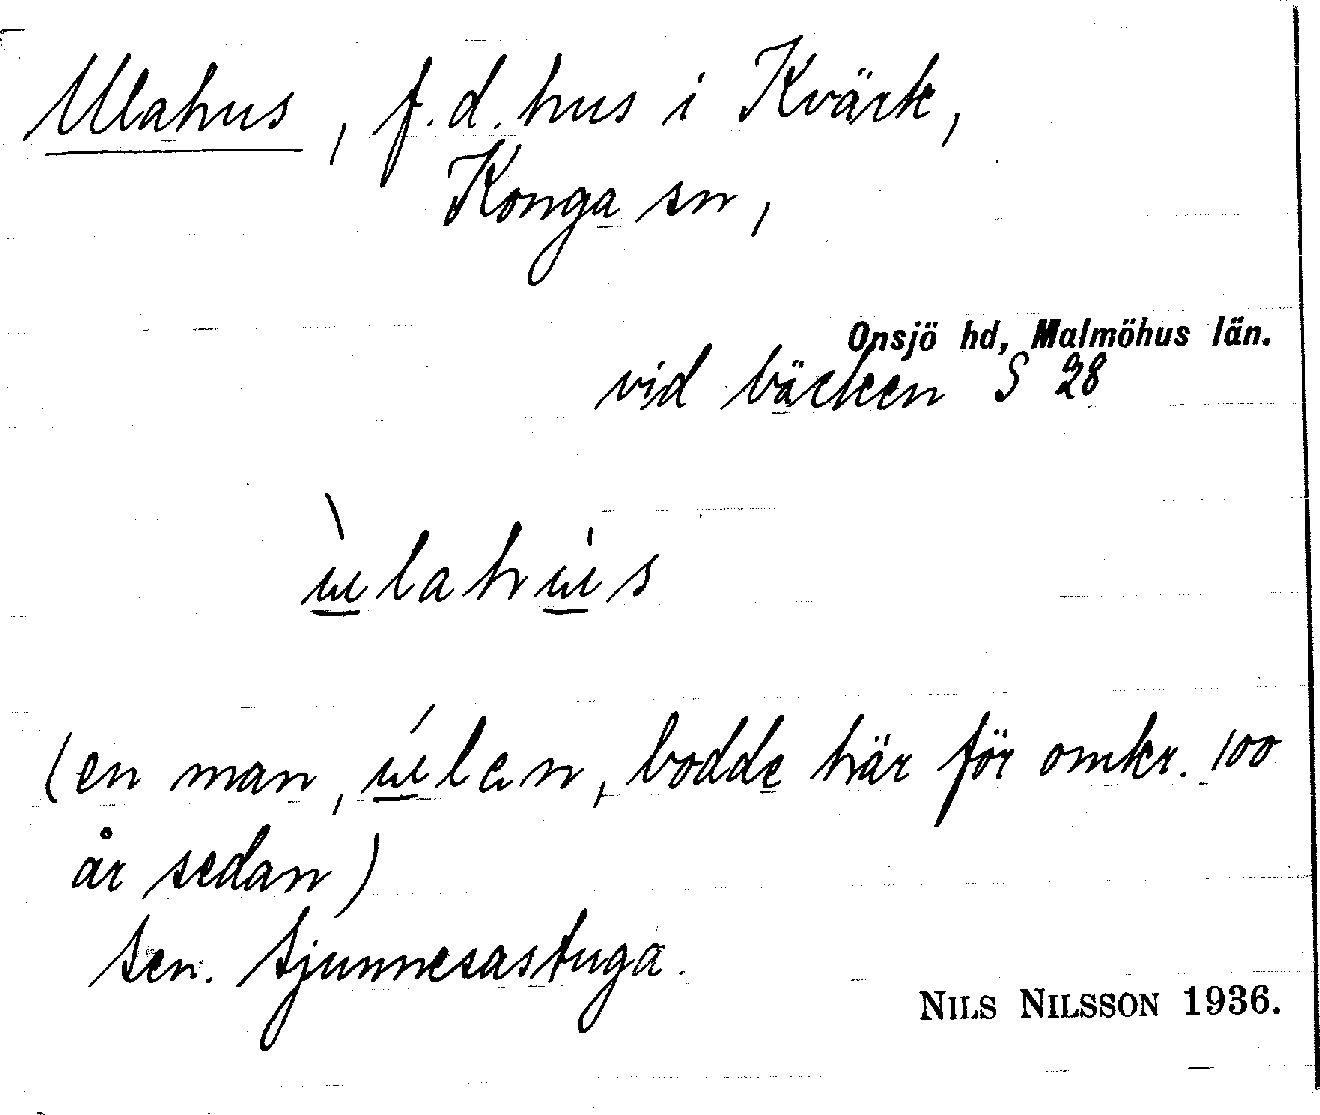 Ulahus, f.d. hus i Kvärk,
Konga sn,
Onsjö hd, Malmöhus län.
vid bäcken S 28
ùlahús
(en man, úlen, bodde här för omkr. 100
år sedan)
sen. Sjunnesastuga.
NILS NILSSON 1936.